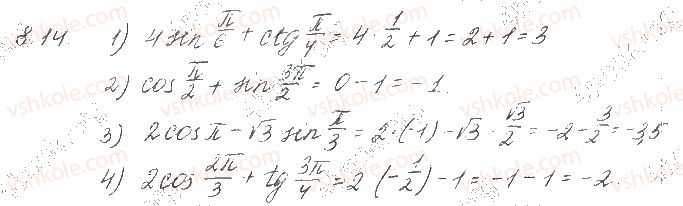 8.14 1) 4 sin π/6 + ctg π/4 = 4 · 1/2 + 1 = 2 + 1 = 3
2) cos π/2 + sin 3π/2 = 0 - 1 = -1.
3) 2 cos π - √3 sin π/3 = 2 · (-1) - √3 · √3/2 = -2 - 3/2 = -3,5
4) 2 cos 2π/3 + tg 3π/4 = 2 (-1/2) - 1 = -1 - 1 = -2.
vshkole.com